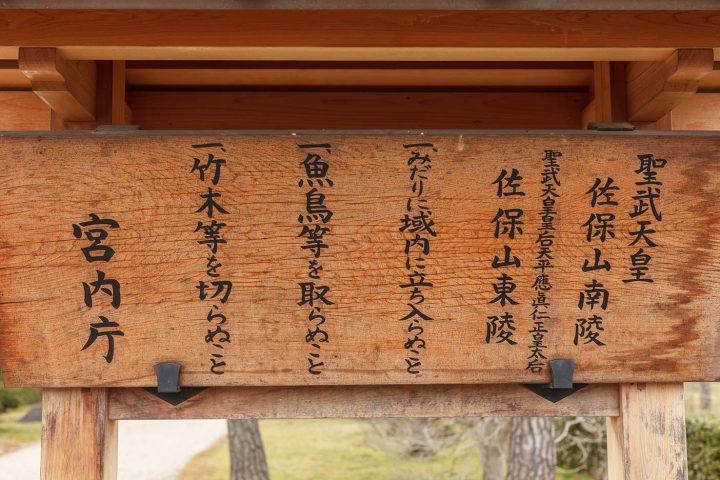 聖武天皇
佐保山南陵
聖武天皇皇后天平應眞仁正皇太后
佐保山東陵
一、みだりに域内に立ち入らぬこと
一、魚鳥等を取らぬこと
一、竹木等を切らぬこと
宮内庁